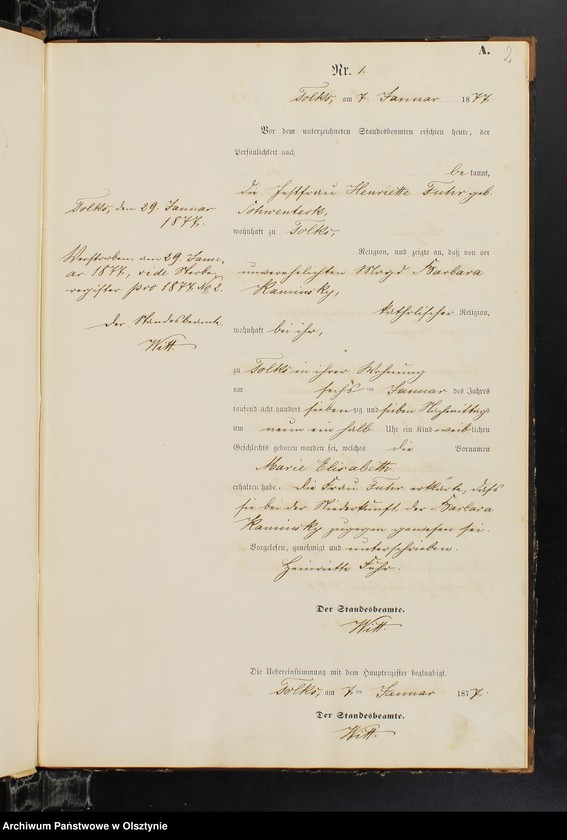 A.
2
Nr. 1.
Tolks, am 7. Januar 1877.
Vor dem unterzeichneten Standesbeamten erschien heute, der
Persönlichkeit nach
be kannt,
die Henriette Fuhr geb.
wohnhaft zu Tolks,
Religion, und zeigte an, daß von der
unverehelichten Magd Barbara
Kaminsky,
katholischer Religion,
wohnhaft bei ihr,
zu Tolks in ihrer Wohnung
am sechs ten Januar des Jahres
tausend acht hundert siebenzig und sieben Nachmittags
um neun ein halb Uhr ein Kind weiblichen
Geschlechts geboren worden sei, welches die Vornamen
Marie Elisabeth
erhalten habe. Die Frau Fuhr erklärte, daß
sie bei der Niederkunft der Barbara
Kaminsky zugegen gewesen sei.
Vorgelesen, genehmigt und unterschrieben.
Heinriette Fuhr.
Der Standesbeamte.
Witt.
Die Uebereinstimmung mit dem Hauptregister beglaubigt.
Tolks, am 7. ten Januar 1877.
Der Standesbeamte.
Witt.
Tolks, den 29. Januar
1877.
Verstorben am 29. Janu-
ar 1877, vide Sterbe-
register pro 1877 № 2.
Der Standesbeamte
Witt.
Archiwum Państwowe w Olsztynie